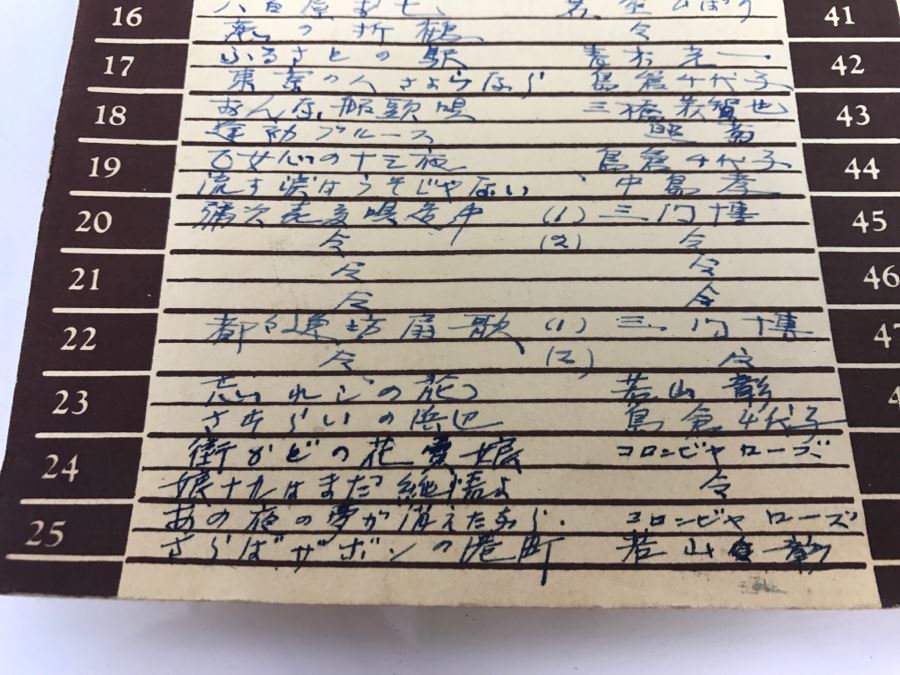 16 41
の折鶴 〃
17 ふるさとの駅 青木光一 42
東京の人さようなら 島倉千代子
18 おんな船頭唄 三橋美智也 43
ブルース
19 乙女心の十三夜 島倉千代子 44
流す涙はうそじゃない 中島孝
20 弥次喜多唄道中 (1) 三門博 45
〃 (2) 〃
21 〃 〃 46
〃 〃
22 都々逸坊扇歌 (1) 三門博 47
〃 (2) 〃
23 忘れじの花 若山彰 4
さすらいの浜辺 島倉千代子
24 街かどの花売娘 コロンビヤローズ
娘十九はまだ純情よ 〃
25 あの夜の夢が消えたなら. コロンビヤローズ
さらばザボンの港町 若山彰